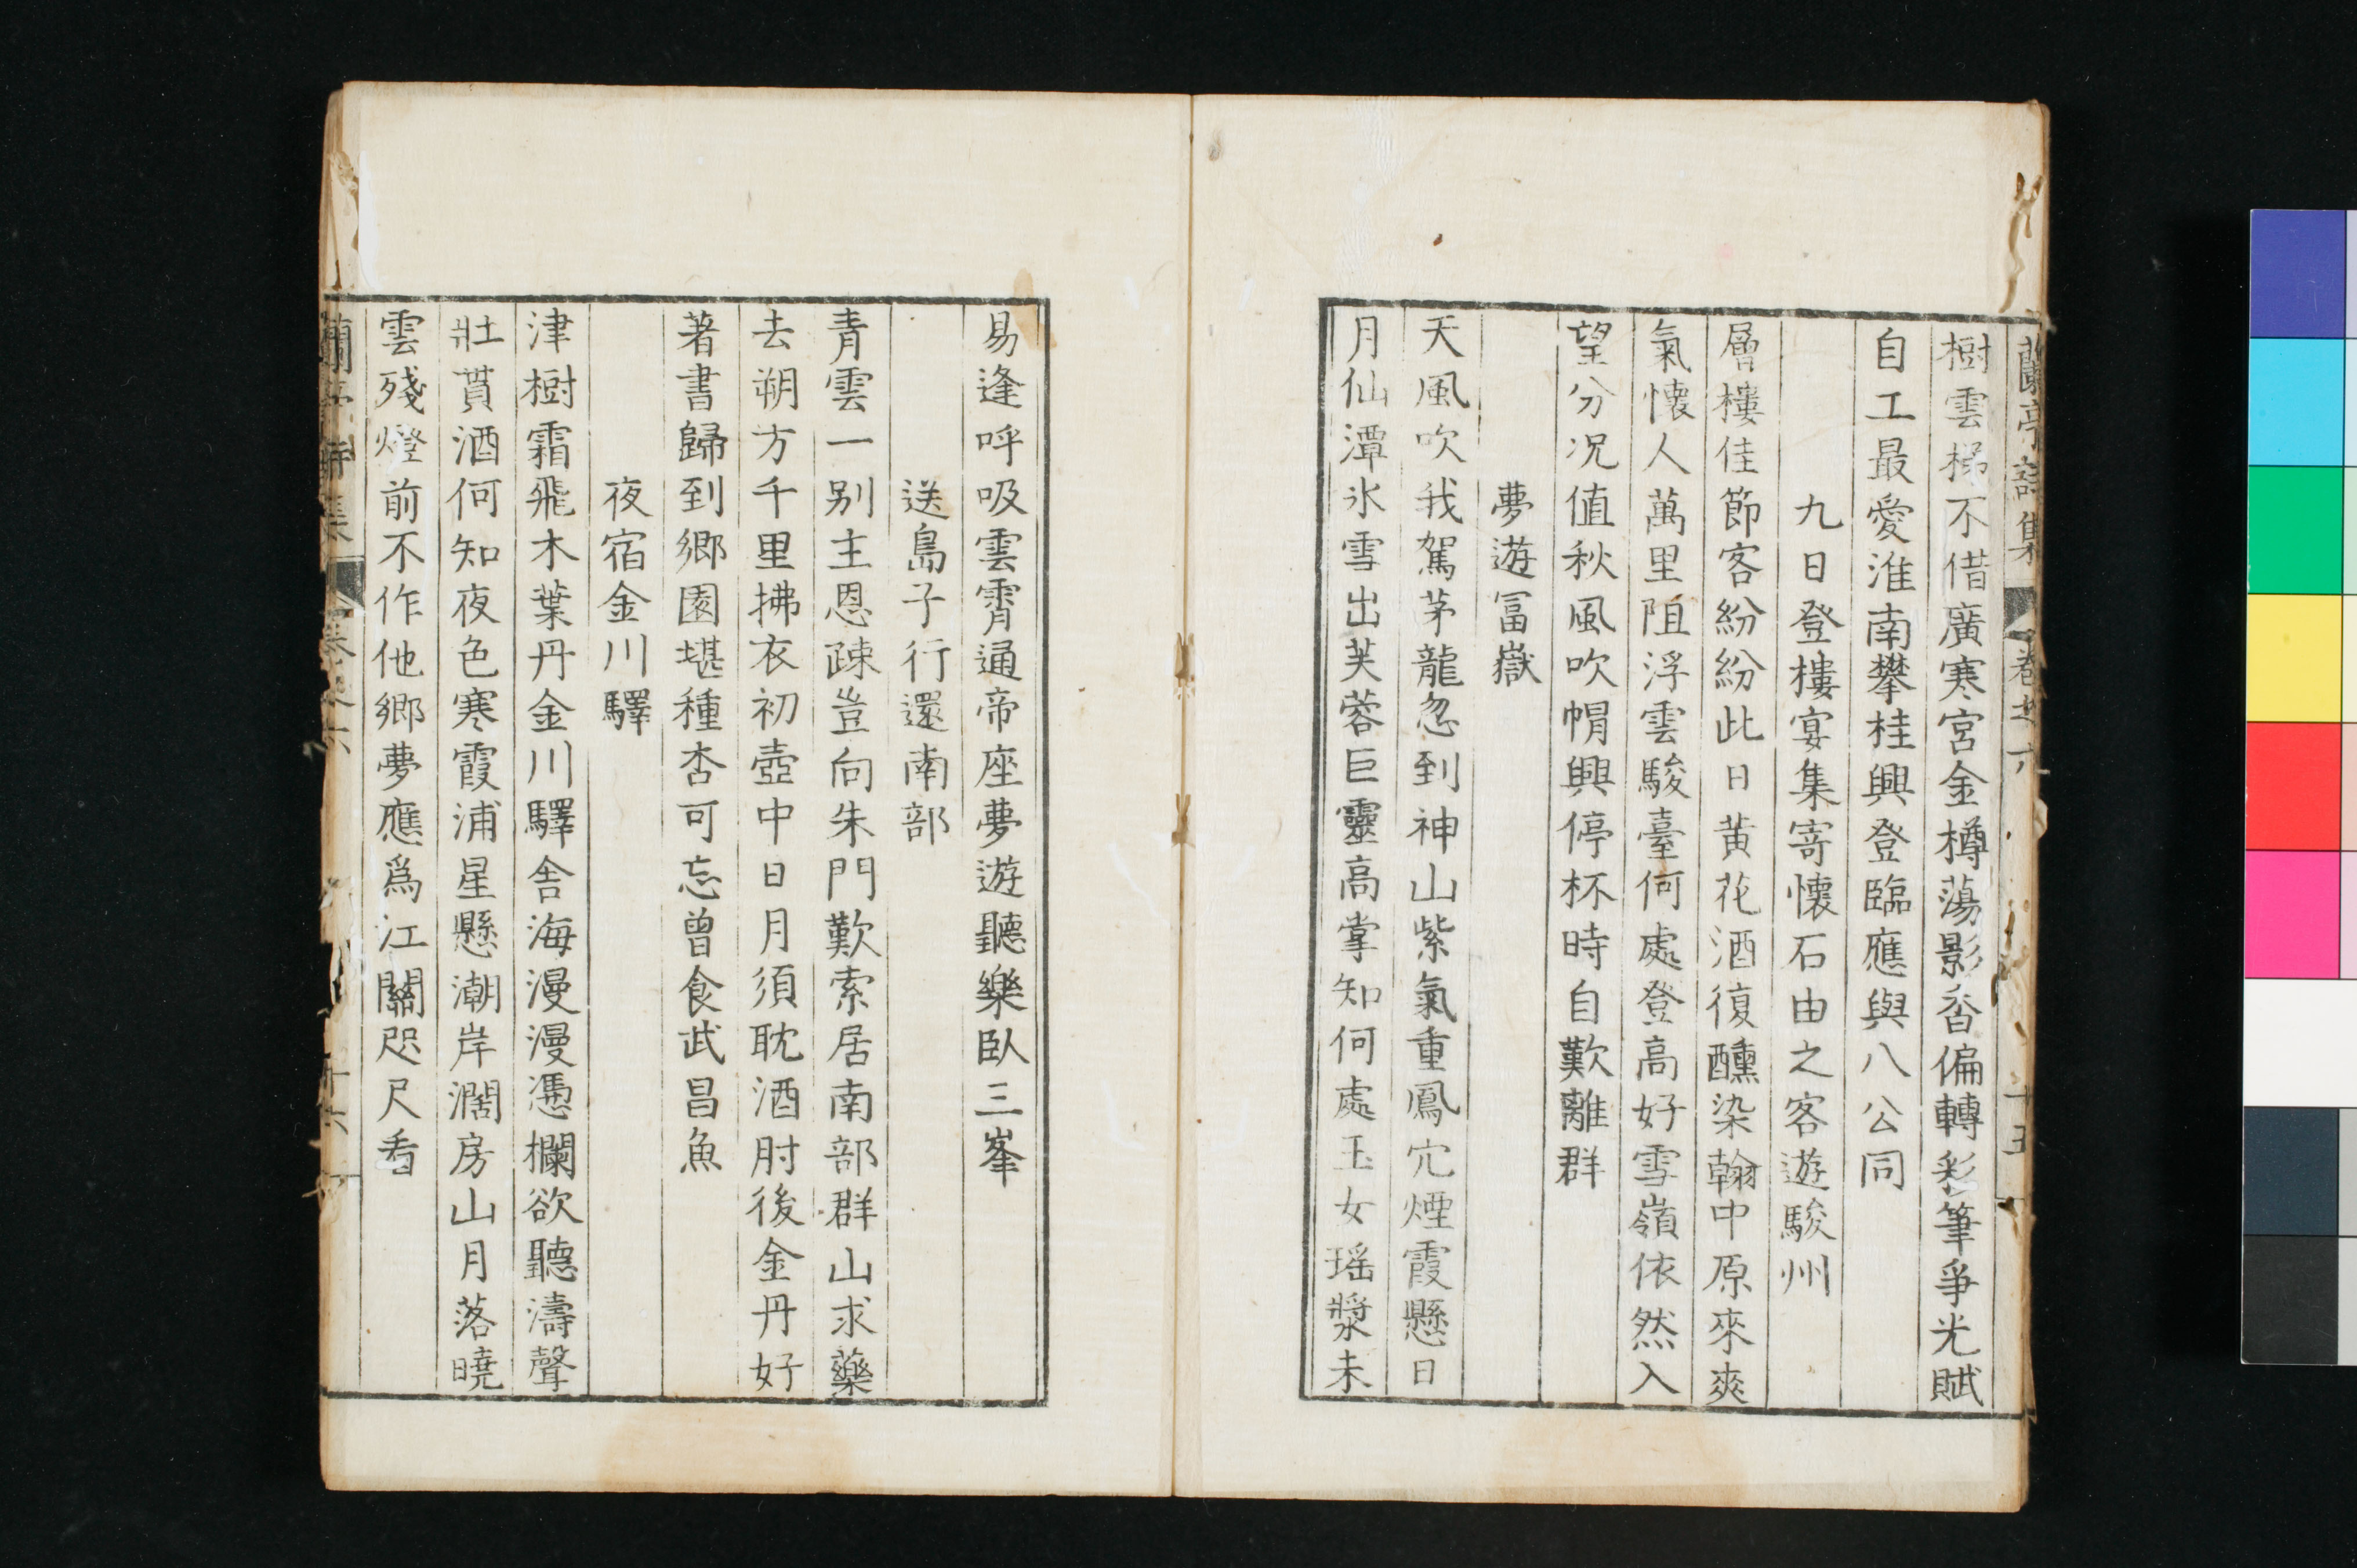 蘭亭詩集 卷之六 十五
樹雲梯不借廣寒宮金樽蕩影香偏轉彩筆爭光賦
自工最愛淮南攀桂興登臨應與八公同
九日登樓宴集寄懷石由之客遊駿州
層樓佳節客紛紛此日黃花酒復醺染翰中原來爽
氣懷人萬里阻浮雲駿臺何處登高好雪嶺依然入
望分况值秋風吹帽興停杯時自歎離群
夢遊冨嶽
天風吹我駕茅龍忽到神山紫氣重鳳穴煙霞懸日
月仙潭氷雪出芙蓉巨靈高掌知何處玉女瑶漿未
易逢呼吸雲霄通帝座夢遊聽樂臥三峯
送島子行還南部
青雲一別主恩疎豈向朱門歎索居南部群山求藥
去朔方千里拂衣初壺中日月須耽酒肘後金丹好
著書歸到鄉園堪種杏可忘曾食武昌魚
夜宿金川驛
津樹霜飛木葉丹金川驛舍海漫漫憑欄欲聽濤聲
壯貰酒何知夜色寒霞浦星懸潮岸濶房山月落曉
雲殘燈前不作他鄉夢應爲江關咫尺看
蘭亭詩集 卷之六 十六